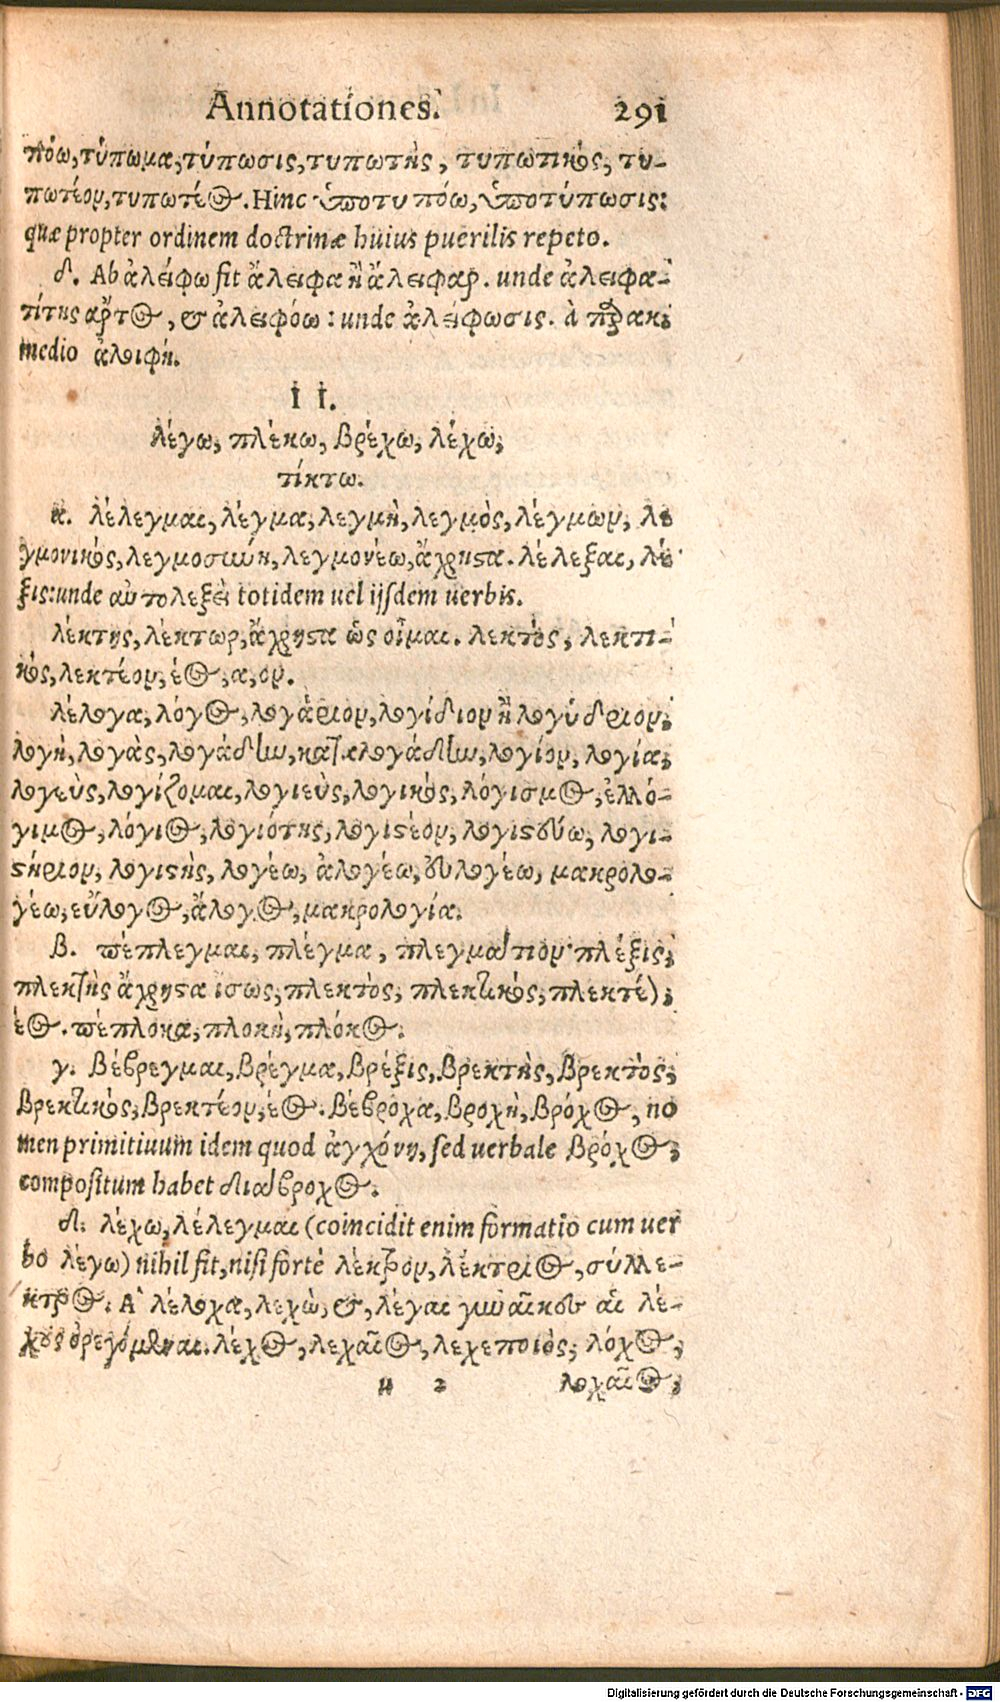 Annotationes. 291
πόω, τύπωμα, τύπωσις, τυπωτὴς, τυπωτικὸς, τυ-
πωτέον, τυπωτέος. Hinc ὑποτυπόω, ὑποτύπωσις:
quæ propter ordinem doctrinæ huius puerilis repeto.
δ. Ab ἀλείφω fit ἄλειφα ἢ ἄλειφαρ. unde ἀλειφα-
τίτης ἄρτος, & ἀλειφόω: unde ἀλείφωσις. à
medio ἀλοιφή.
II.
λέγω, πλέκω, βρέχω, λέχω,
τίκτω.
α. λέλεγμαι, λέγμα, λεγμὴ, λεγμὸς, λέγμων, λε
γμονικὸς, λεγμοσύνη, λεγμονέω, ἄχρηστα. λέλεξαι, λέ
ξις: unde αὐτολεξεὶ totidem uel ijsdem uerbis.
λέκτης, λέκτωρ, ἄχρηστα ὡς οἶμαι. λεκτὸς, λεκτι-
κὸς, λεκτέον, έος, α, ον.
λέλογα, λόγος, λογάριον, λογίδιον ἢ λογύδριον,
λογὴ, λογὰς, λογάδην, καταλογάδην, λογίον, λογία,
λογεὺς, λογίζομαι, λογιεὺς, λογικὸς, λόγισμος, ἐλλό-
γιμος, λόγιος, λογιότης, λογιστέον, λογιστεύω, λογι-
στήριον, λογιστὴς, λογέω, ἀλογέω, εὐλογέω, μακρολο-
γέω, εὔλογος, ἄλογος, μακρολογία.
β. πέπλεγμαι, πλέγμα, πλεγμάτιον πλέξις,
πλεκτὴς ἄχρηστα ἴσως, πλεκτὸς, πλεκτικὸς, πλεκτέον,
έος. πέπλοκα, πλοκὴ, πλόκος.
γ. βέβρεγμαι, βρέγμα, βρέξις, βρεκτὴς, βρεκτὸς,
βρεκτικὸς, βρεκτέον, έος. βέβροχα, βροχὴ, βρόχος, no
men primitiuum idem quod ἀγχόνη, sed uerbale βρόχος,
compositum habet διάβροχος.
δ. λέχω, λέλεγμαι (coincidit enim formatio cum uer
bo λέγω) nihil fit, nisi fortè λέκτρον, λέκτριος, σύλλε-
κτρος. A λέλοχα, λεχὼ, &, λέγαι γυναῖκες αἱ λέ-
χους ὀρεγόμεναι. λέχος, λεχαῖος, λεχεποιὸς, λόχος,
u 2 λοχαῖος,
Digitalisierung gefördert durch die Deutsche Forschungsgemeinschaft - DFG